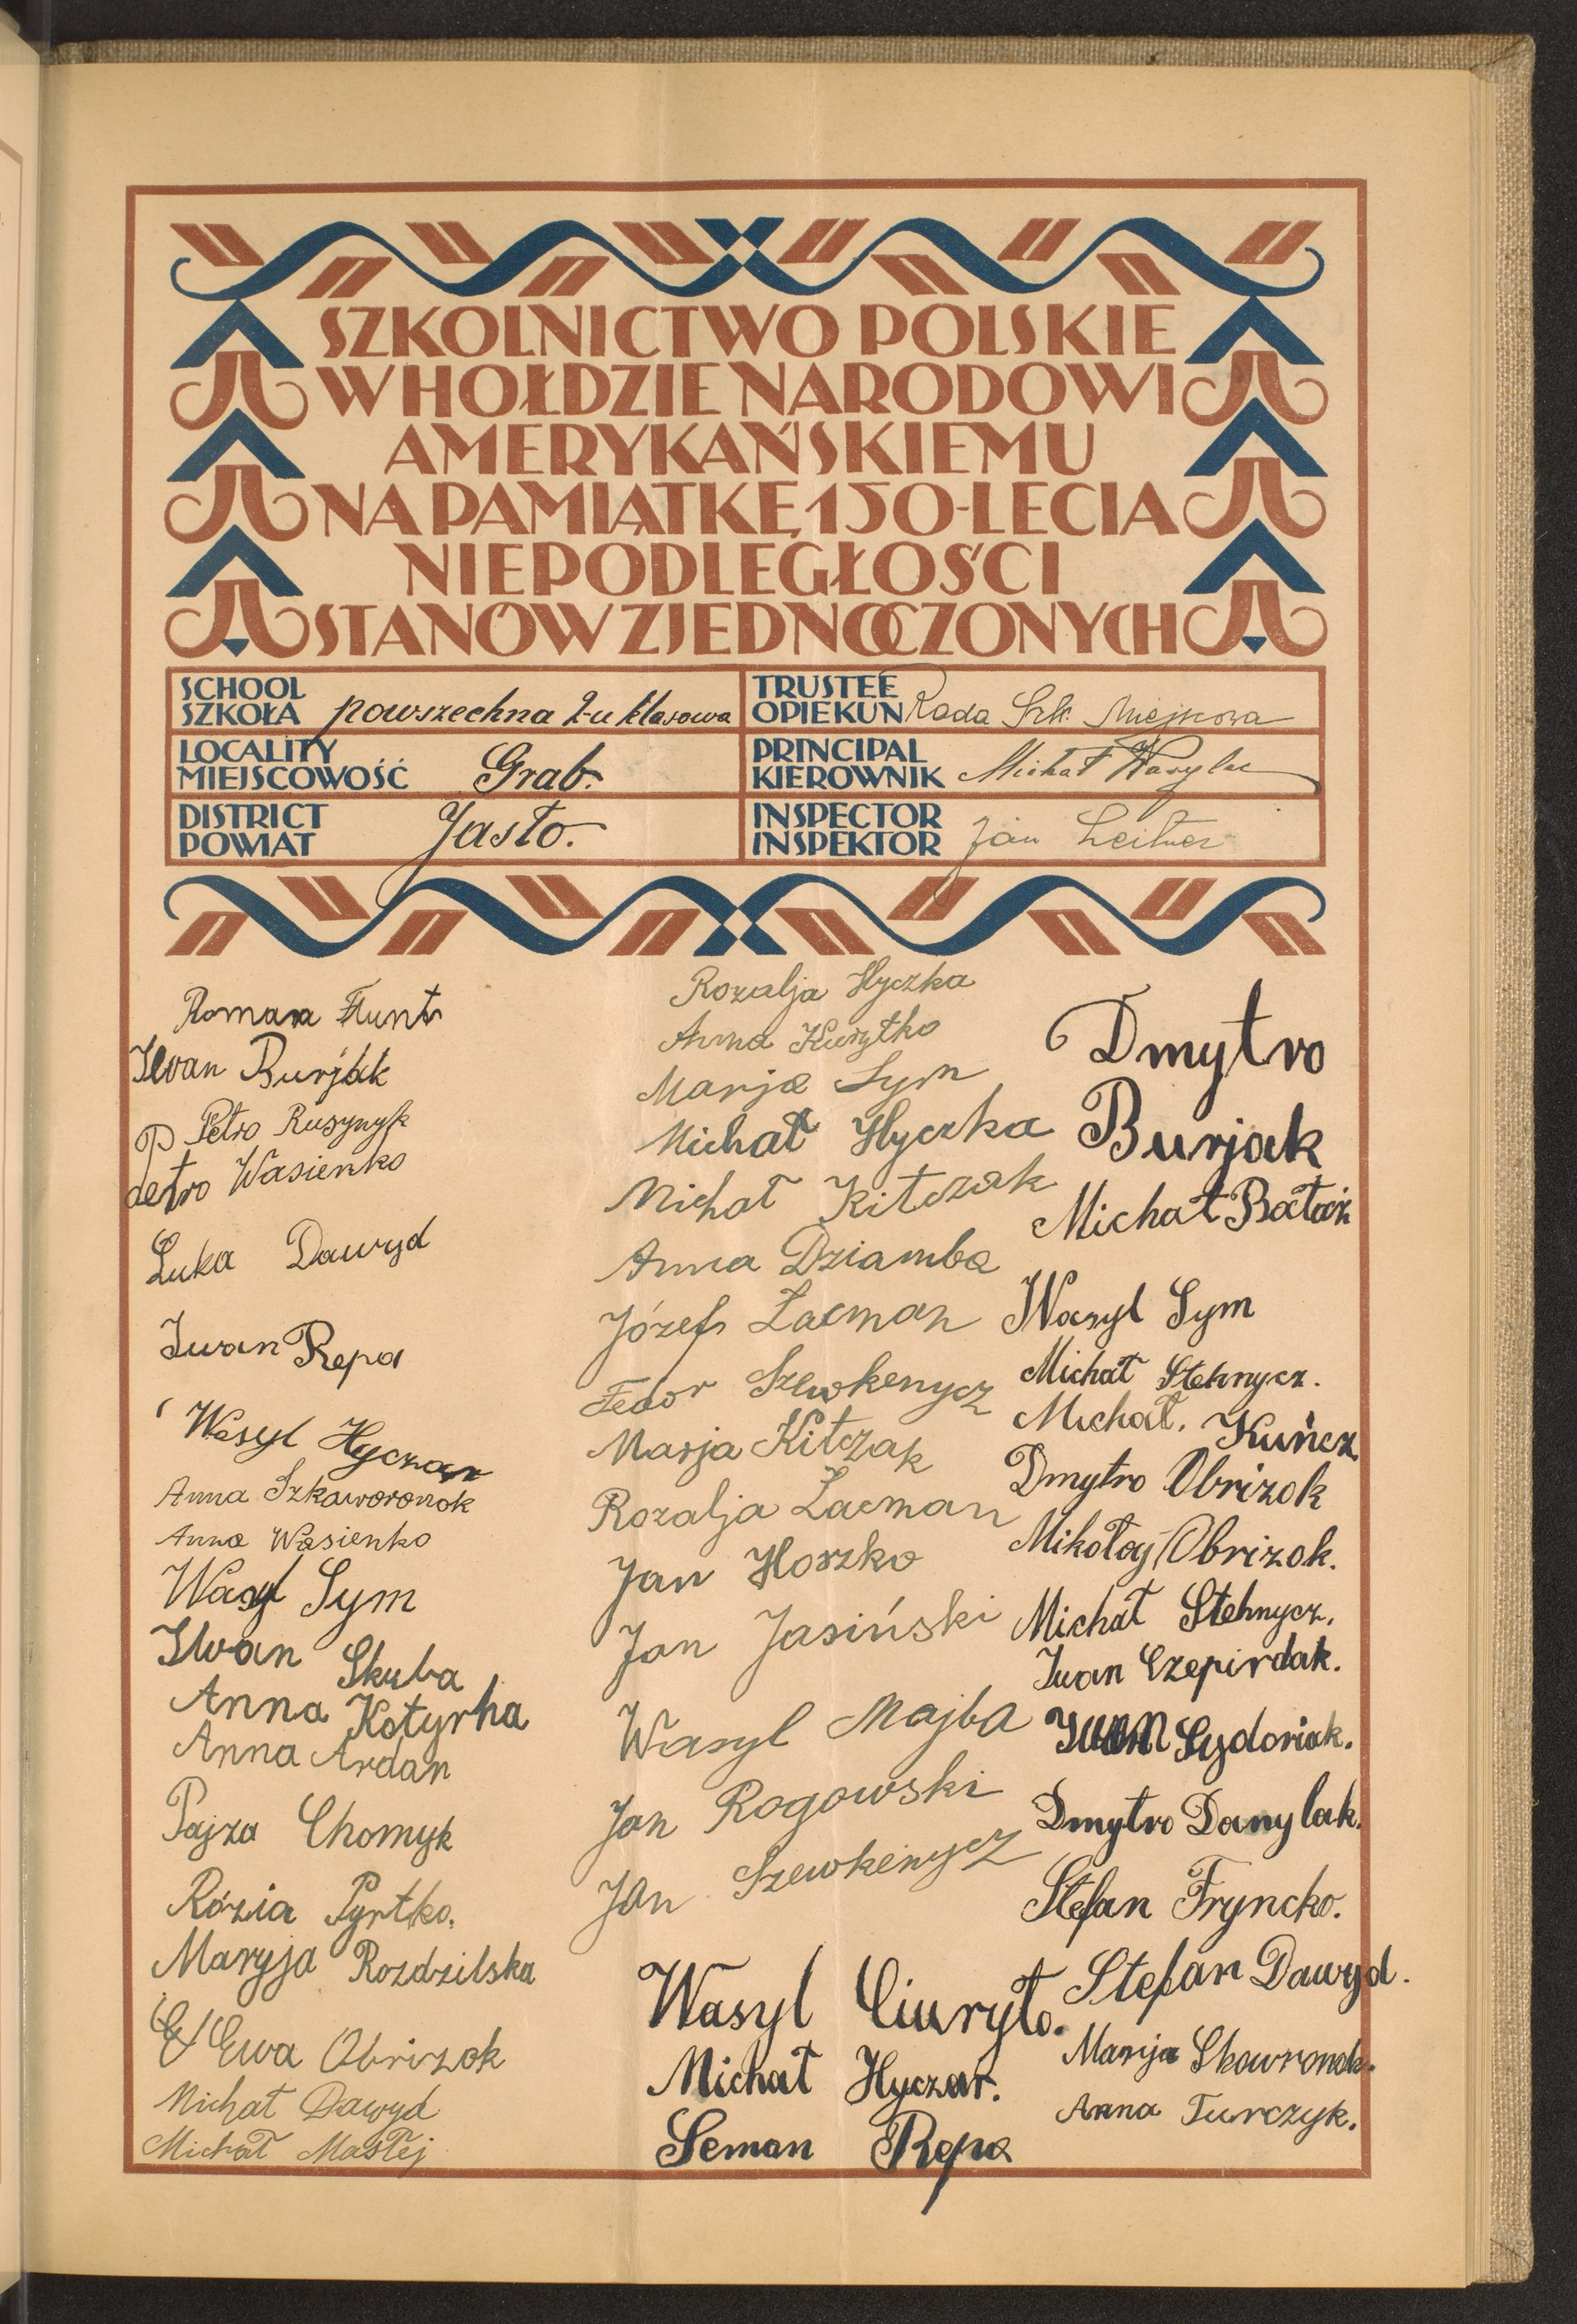 SZKOLNICTWO POLSKIE
W HOŁDZIE NARODOWI
AMERYKAŃSKIEMU
NA PAMIĄTKĘ 150-LECIA
NIEPODLEGŁOŚCI
STANÓW ZJEDNOCZONYCH
SCHOOL
SZKOŁA powszechna 2-u klasowa
LOCALITY
MIEJSCOWOŚĆ Grab.
DISTRICT
POWIAT Jasło.
TRUSTEE
OPIEKUN Rada Szk. Miejscowa
PRINCIPAL
KIEROWNIK Michał
INSPECTOR
INSPEKTOR Jan Leitner
Roman Hunt
Iwan Burjak
Petro Rusynyk
Petro Wasienko
Luka Dawyd
Iwan Repa
Wasyl Hyczar
Anna Szkaworonok
Anna Wasienko
Wasyl Sym
Iwan Skuba
Anna Kotyrha
Anna Ardan
Pajza Chomyk
Rózia Pyrtko.
Maryja Rozdzilska
Ewa Obrizok
Michał Dawyd
Michał Masłej
Rozalja Hyczka
Anna Kuryłko
Marja Sym
Michał Hyczka
Michał Kitczak
Anna Dziamba
Józef Lacman
Fedor Szewkenycz
Marja Kitczak
Rozalja Lacman
Jan Hoszko
Jan Jasiński
Wasyl Majba
Jan Rogowski
Jan Szewkenycz
Wasyl Ciuryło.
Michał Hyczar.
Seman Repa
Dmytro
Burjak
Michał
Wasyl Sym
Michał Stehnycz.
Michał. Kuńcz
Dmytro Obrizok
Mikołaj Obrizok.
Michał Stehnycz.
Iwan Czepirdak.
Iwan Sydoriak.
Dmytro Danylak.
Stefan Fryncko.
Stefan Dawyd.
Marija Skowronok.
Anna Turczyk.